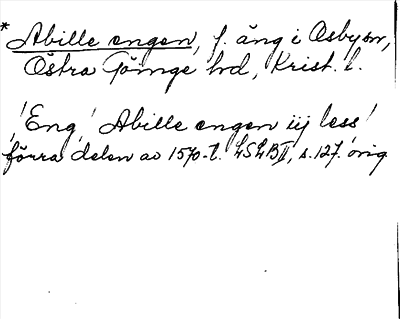 * Abille engen, f. äng i Osby sn,
Östra Göinge hd, Krist. l.
'Eng' Abille engen iij less'
förra delen av 1570-t. LSLBII, s. 127. orig